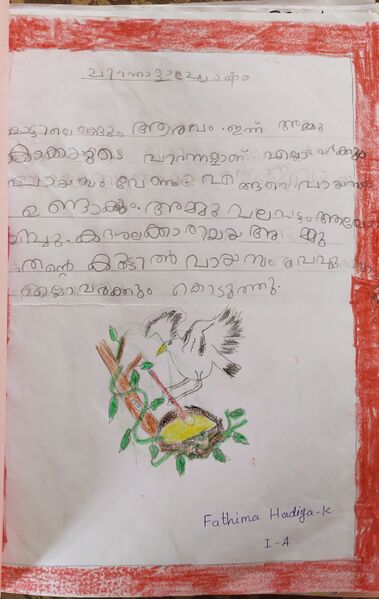 പിറന്നാളാഘോഷം
കാട്ടിലെങ്ങും ആരവം. ഇന്ന് അമ്മു
കാക്കയുടെ പിറന്നാളാണ്. എല്ലാവർക്കും
പായസം വേണം. എങ്ങനെ പായസം
ഉണ്ടാക്കും. അമ്മു പലവട്ടം ആലോ
ചിച്ചു. കുശലക്കാരിയായ അമ്മു
തന്റെ കൂട്ടിൽ പായസം
എല്ലാവർക്കും കൊടുത്തു.
Fathima Hadiya-K
I-A